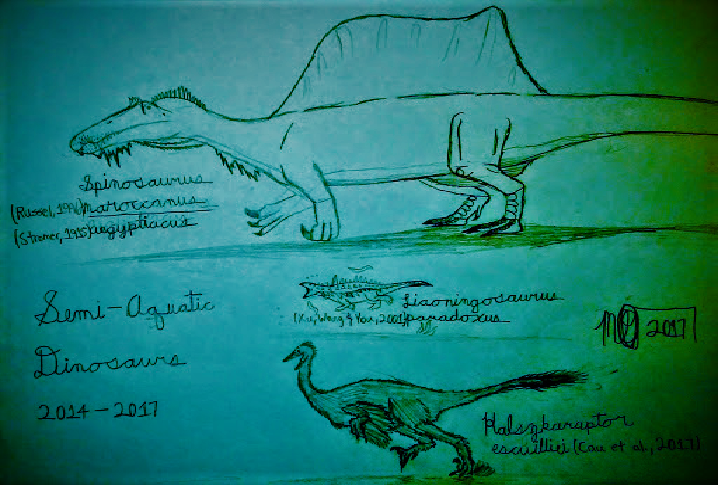 Spinosaurus
(Russel, 1996) maroccanus
(Stromer, 1915) aegyptiacus
Semi-Aquatic
Dinosaurs
2014-2017
Liaoningosaurus
(Xu, Wang & You, 2001) paradoxus
2017
Halszkaraptor
escuilliei (Cau et al, 2017)